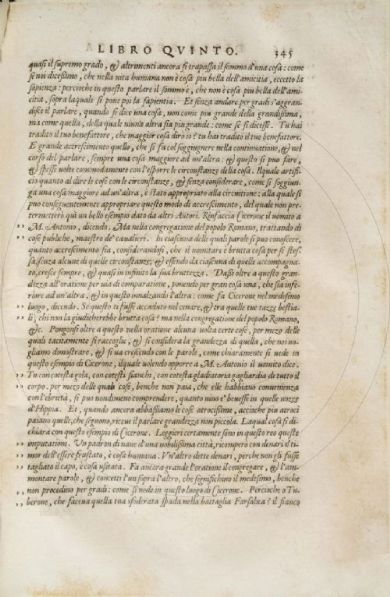 LIBRO QVINTO. 345
quasi il supremo grado, & altrimenti ancora si trapassa il sommo d'una cosa: come
se noi dicessimo, che nella vita humana non è cosa più bella dell'amicitia, eccetto la
sapienza: percioche in questo parlare il sommo è, che non è cosa più bella dell'ami-
citia, sopra la quale si pone poi la sapientia. Et senza andare per gradi s'aggran-
disce il parlare, quando si dice una cosa, non come più grande della grandissima,
ma come quella, della quale niuna altra sia più grande: come se si dicesse. Tu hai
tradito il tuo benefattore, che maggior cosa dirò io? tu hai tradito il tuo benefattore.
E grande accrescimento quello, che si fa col soggiugnere nella continuatione, & nel
corso del parlare, sempre una cosa maggiore ad un'altra: & questo si puo fare,
& spesse volte commodamente con l'esporre le circonstanze della cosa. Ilquale arti-
ficio quanto al dire le cose con le circonstanze, & senza considerare, come si soggiun-
ga una cosa maggiore ad un'altra, è stato appropriato alla circuitione: alla quale si
può conseguentemente appropriare questo modo di accrescimento, del quale non pre-
termetterò quì un bello esempio dato da altri Autori. Rinfaccia Cicerone il vomito a
M. Antonio, dicendo. Ma nella congregatione del popolo Romano, trattando di
cose publiche, maestro de' cavalieri. In ciascuna delle quali parole si può conoscere,
quanto accrescimento sia, considerandosi, che il vomitare è brutta cosa per se stes-
sa, senza alcune di quelle circonstanze; & essendo da ciascuna di quelle accompagna-
to, cresce sempre, & quasi in infinito la sua bruttezza. Dassi oltre a questo gran-
dezza all'oratione per via di comparatione, ponendo per gran cosa una, che sia infe-
riore ad un'altra, & in questo innalzando l'altra: come fa Cicerone nel medesimo
luogo, dicendo. Se questo ti fusse accaduto nel cenare, & tra quelle tue tazze bestia-
li, chi non la giudicherebbe brutta cosa? ma nella congregatione del popolo Romano,
&c. Ponsonsi oltre a questo nella oratione alcuna volta certe cose, per mezo delle
quali tacitamente si raccoglie, & si considera la grandezza di quella, che noi vo-
gliamo dimostrare, & si va crescendo con le parole, come chiaramente si vede in
questo esempio di Cicerone, ilquale volendo opporre a M. Antonio il vomito dice.
Tu con cotesta gola, con cotesti fianchi, con cotesta gladiatoria gagliardia di tutto il
corpo. per mezo delle quali cose, benche non paia, che elle habbiano convenienza
con l'ebrietà, si può nondimeno comprendere, quanto vino e' bevesse in quelle nozze
d'Hippia. Et, quando ancora abbassiamo le cose atrocissime, accioche più atroci
paiano quelle, che seguono, ricevе il parlare grandezza non piccola. Laqual cosa si di-
chiara con questo esempio di Cicerone. Leggieri certamente sono in questo reo queste
imputationi. Un padron di nave d'una nobilissima città, ricuperò con denari il ti-
mor dell'essere frustato, è cosa humana. Un'altro dette denari, perche non gli fusse
tagliato il capo, è cosa usitata. Fa ancora grande l'oratione il congregare, & l'am-
montare parole, & concetti l'un sopra l'altro, che significhino il medesimo, benche
non procedino per gradi: come si vede in questo luogo di Cicerone. Percioche o Tu-
berone, che faceva quella tua sfoderata spada nella battaglia Farsalica? il fianco